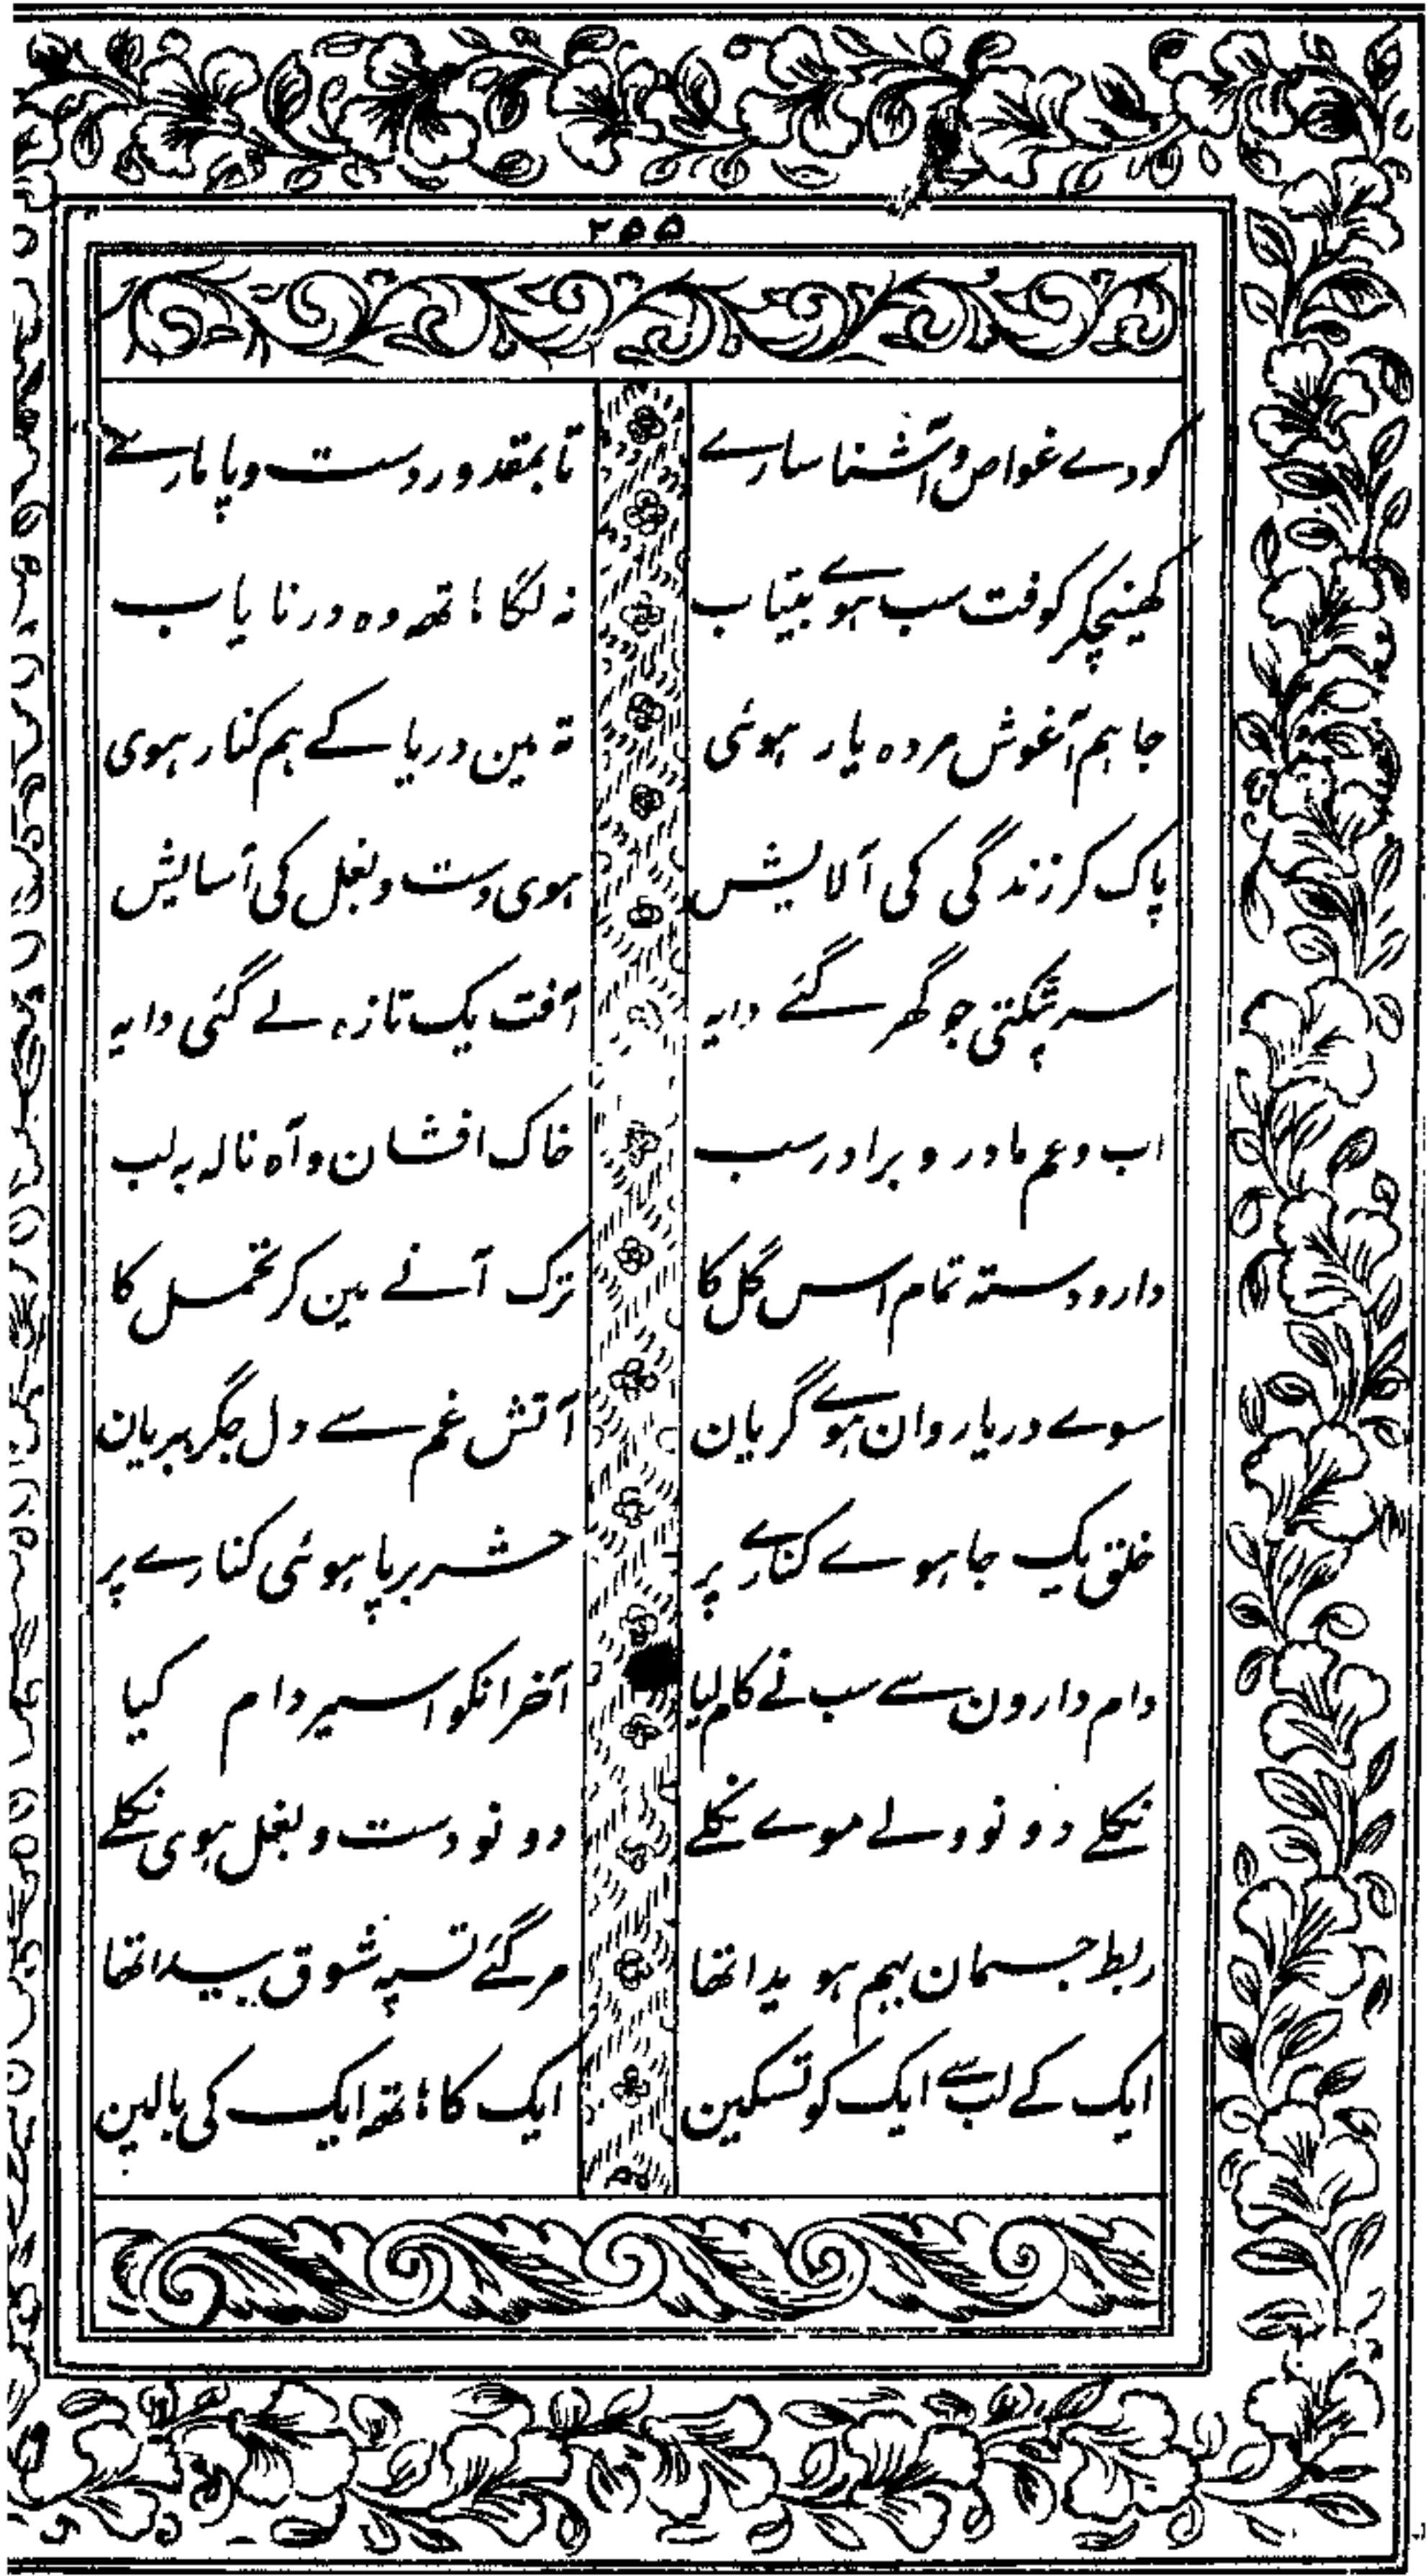 ۲۵۵
کودے غواص و آشنا سارے تا بمقدور دست و پا مارے
کھینچکر کوفت سب ہوے بیتاب نہ لگا ہاتھ وہ در نایاب
جا ہم آغوش مردہ یار ہوئی تہ مین دریا کے ہم کنار ہوی
پاک کر زندگی کی آلایش ہوی دست و بغل کی آسایش
سر پٹکتی جو گھر گئے دایہ آفت یک تازہ لے گئی دایہ
اب و عم مادر و برادر سب خاک افشان و آہ نالہ بہ لب
دار و دستہ تمام اس گل کا ترک آنے مین کر تحمل کا
سوے دریا روان ہوے گریان آتش غم سے دل جگر بریان
خلق یک جا ہوے کنارے پر حشر برپا ہوئی کنارے پر
دام دارون سے سب نے کام لیا آخر انکو اسیر دام کیا
نکلے دونو ولے موے نکلے دونو دست و بغل ہوی نکلے
ربط جسمان بہم ہویدا تھا مر گئے تسپہ شوق پیدا تھا
ایک کے لب سے ایک کو تسکین ایک کا ہاتھ ایک کی بالین